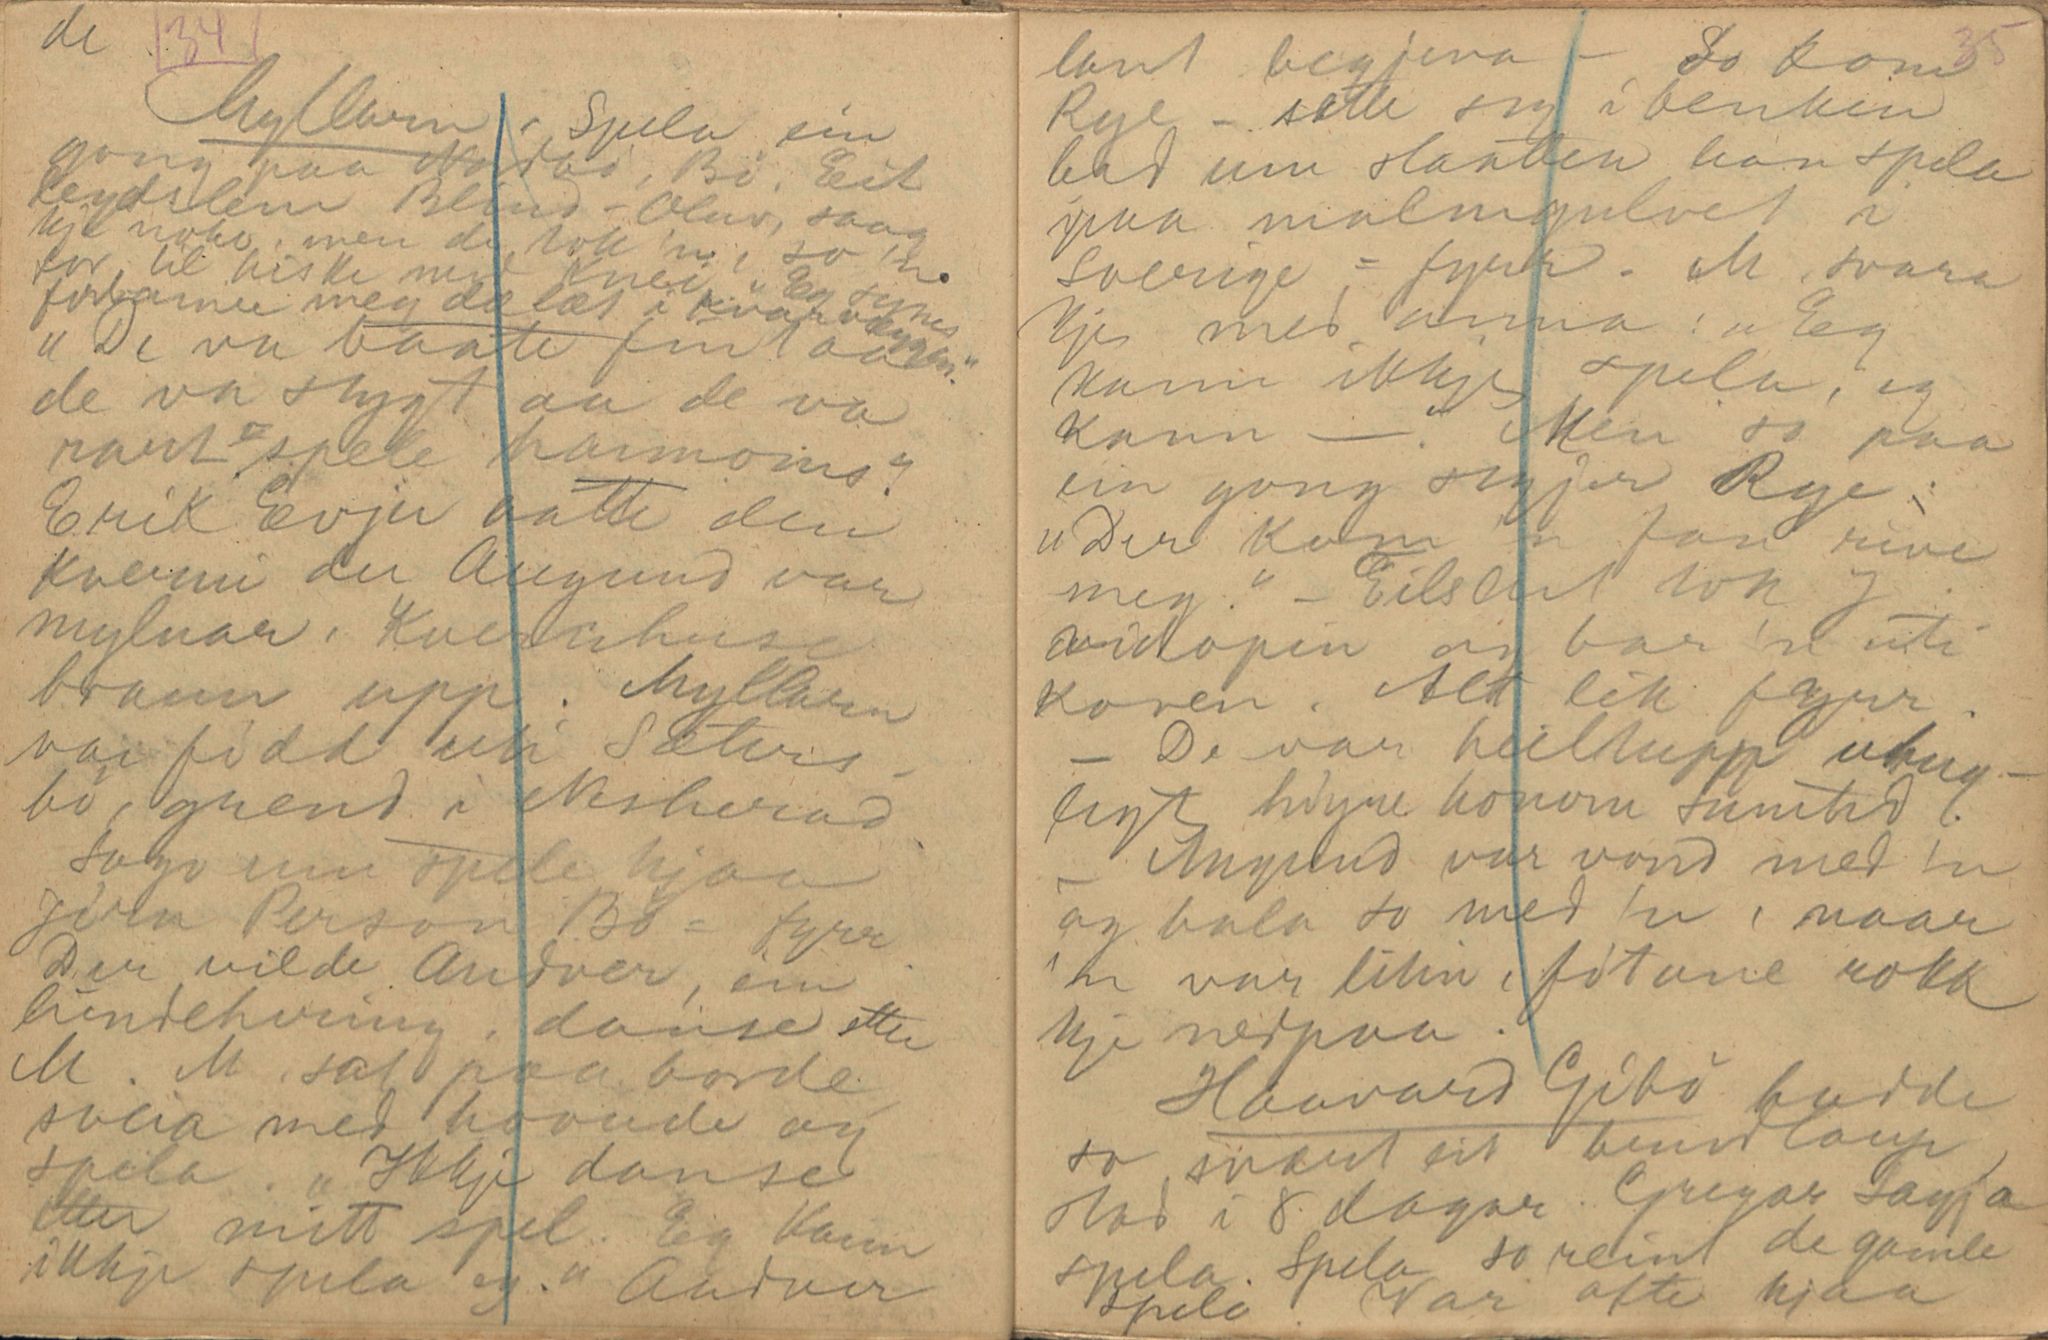 de 34
Myllarn. Spela ein
gong paa Nordbø, Bø. Eit
legdslem Blind-Olav, saag
kje noko, men de tok 'n, so 'n
for til hiske med knei. "Eg synes
forbanne meg de læt i kvar veggen."
"De va baate fint aa
de va stygt aa de va
rart spele harmonis"
Erik Evju hatte den
kverni der Augund var
mylnar. Kvernhuse
brann upp. Myllarn
var fødd uti Sæters-
bø, grend i Nesherad
Sogo um spele hjaa
Jørn Person Bø = fyrr
Der vilde Andver, ein
hindehviing, danse etter
M. M. sat paa borde
sveia med hovude og
spela. "Ikkje danse
etter mitt spel. Eg kann
ikkje spela eg." Andver
35
lant begjera - So kom
Rye - sette seg i benken
bad um slaatten han spela
paa malmgulvet i
Sverige = fyrr. M. svara
kje med anna: "Eg
kann ikkje spela, eg
kann —." Men so paa
ein gong segjer Rye:
"Der kom 'n fan rive
meg." - Eilslent tok J.
vidopin og bar 'n uti
koven. Alt lik fyrr.
- De var heiltupp ubeg-
legt høyre honom sumtid.
- Augund var vond med 'n
og bala so med 'n, naar
'n var litin, føtane rokk
kje nedpaa.
Haavard Gibø hadde
so svært eit brudlaup,
stod i 8 dagar. Gregar
spela. Spela so reint de gamle
spele. Var ofte hjaa